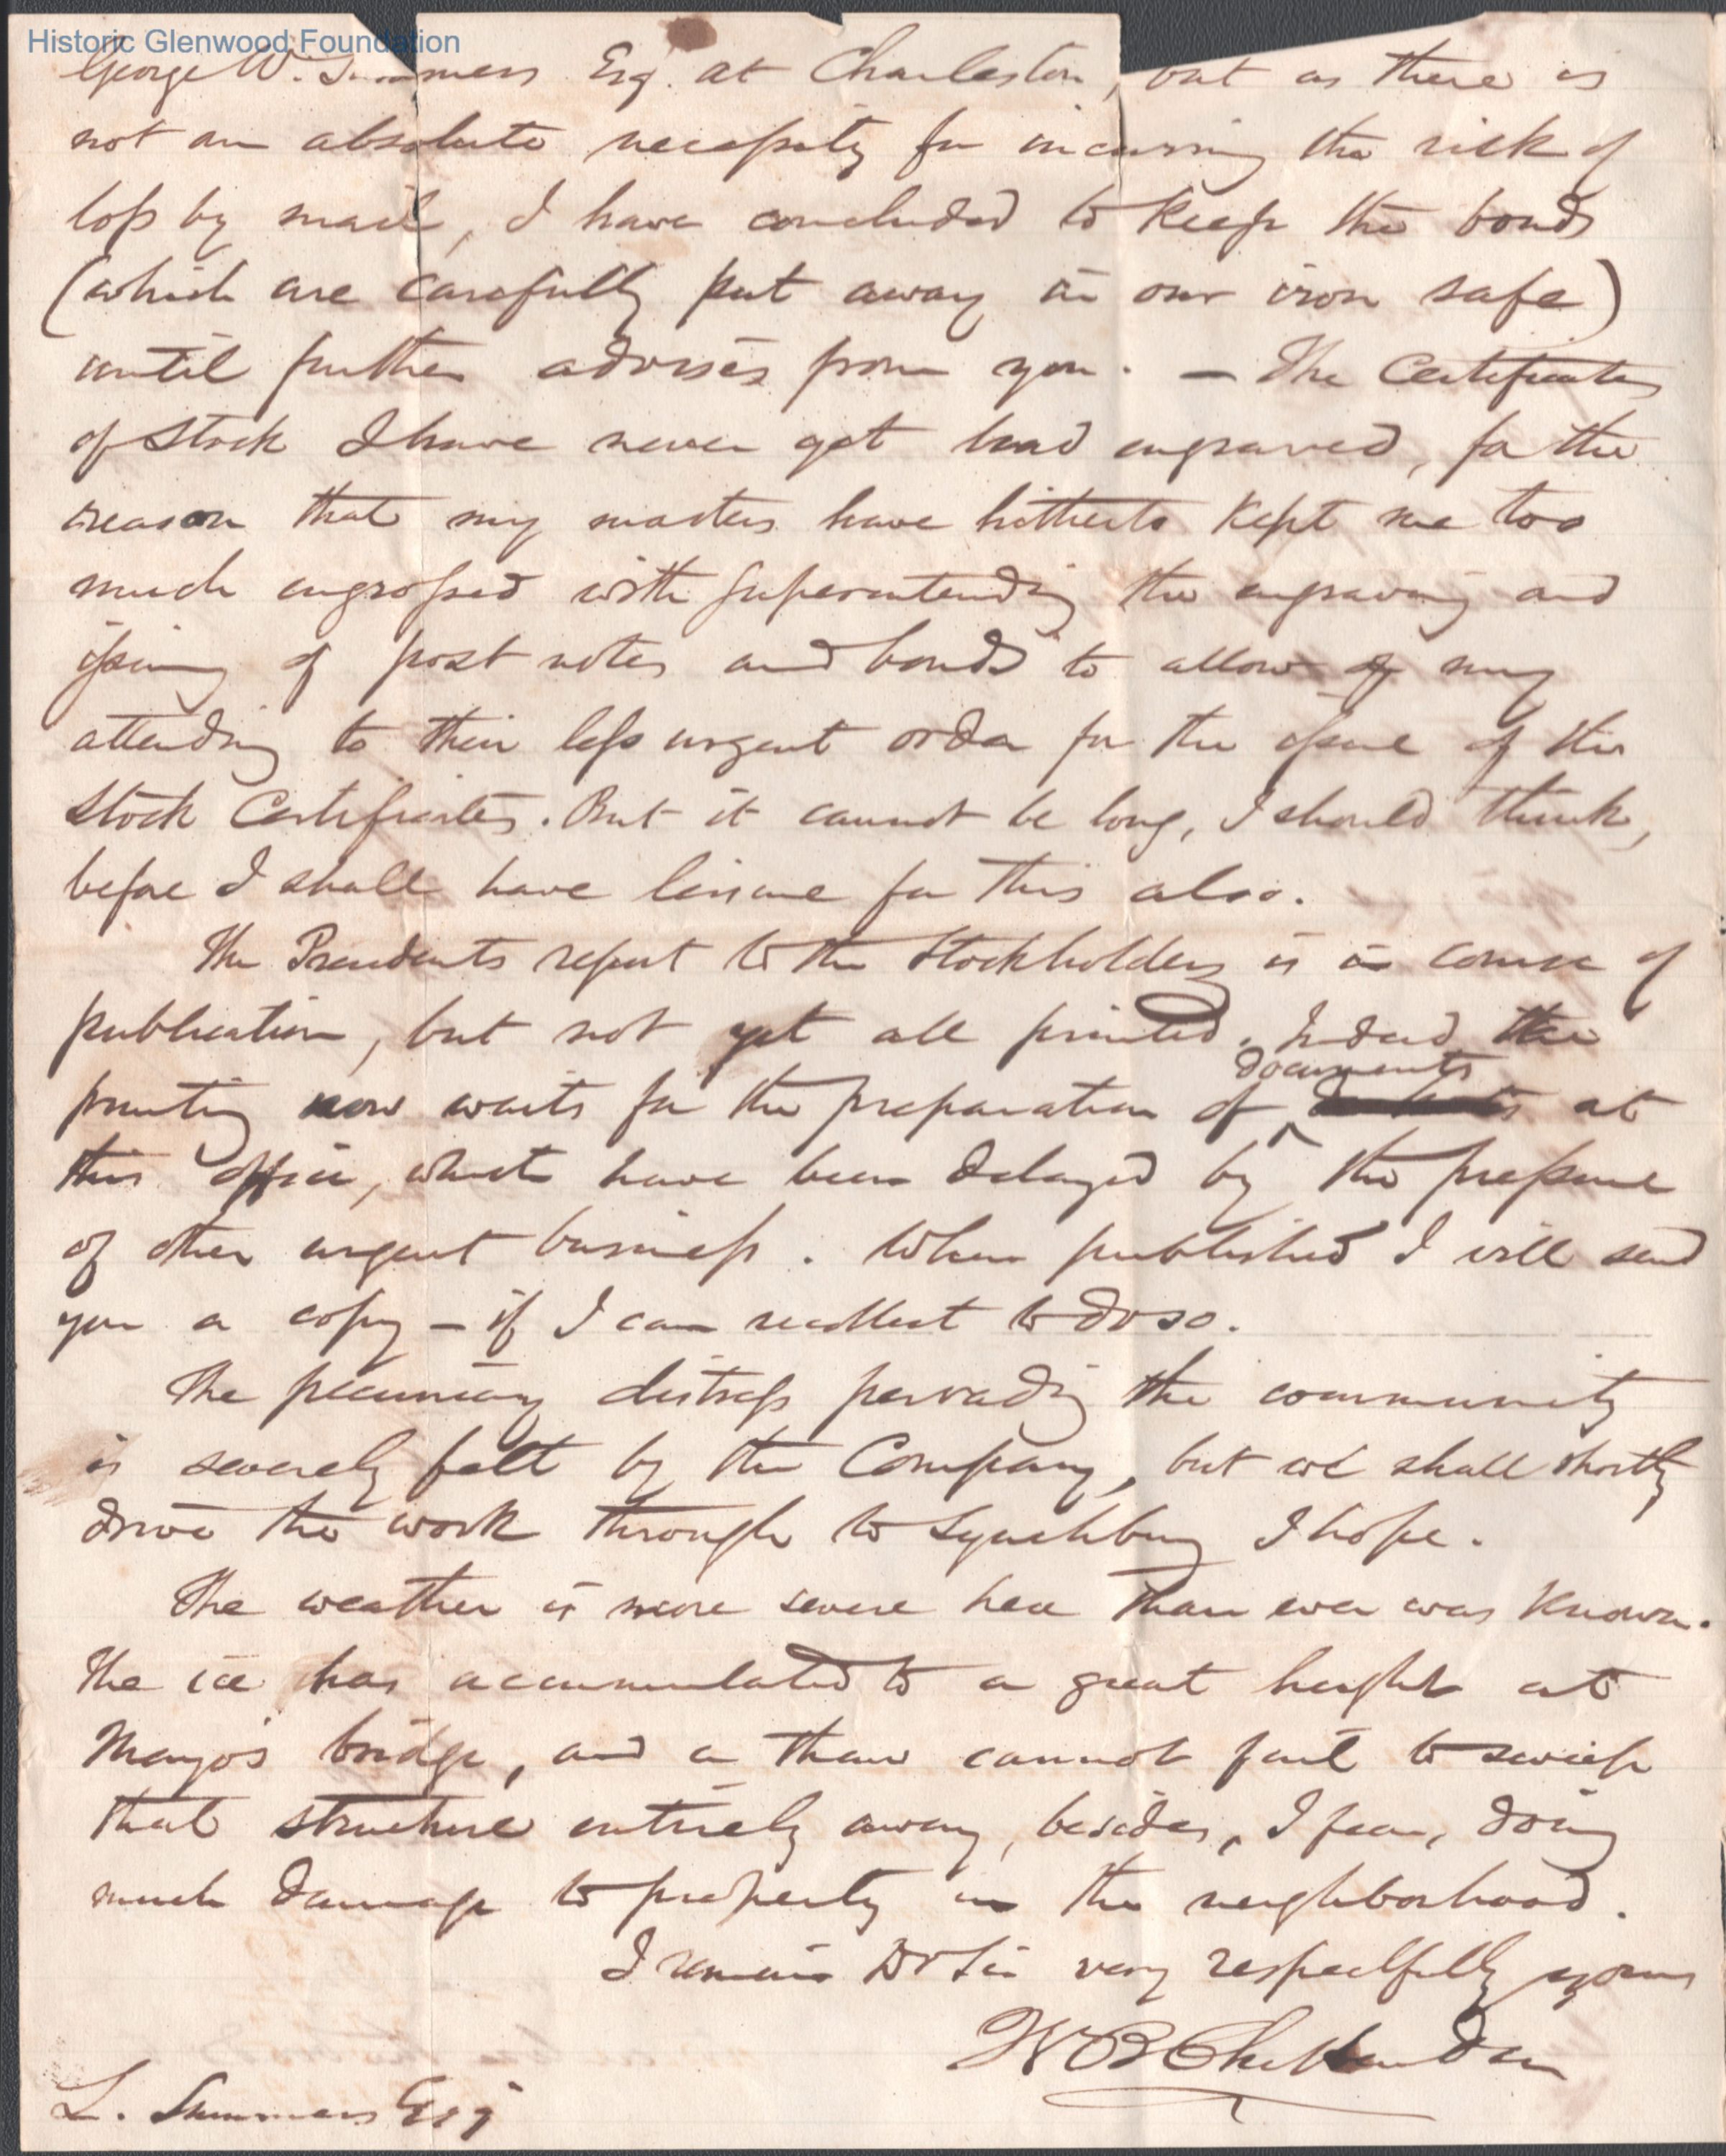 Historic Glenwood Foundation
George W. Summers Esq. at Charleston, but as there is
not an absolute necessity for incurring the risk of
loss by mail, I have concluded to keep the bonds
(which are carefully put away in our iron safe)
until further advises from you. — The Certificates
of Stock I have never yet had engraved, for the
reason that my masters have hitherto kept me too
much engrossed with superintending the engraving and
issuing of post notes and bonds to allow of my
attending to their less urgent order for the issue of the
Stock Certificates. But it cannot be long, I should think,
before I shall have leisure for this also.
The Presidents report to the Stockholders is in course of
publication, but not yet all printed. Indeed the
documents
printing now waits for the preparation of at
this office, which have been delayed by the pressure
of other urgent business. When published I will send
you a copy — if I can recollect to do so.
The pecuniary distress pervading the community
is severely felt by the Company, but we shall shortly
drive the work through to Lynchburg I hope.
The weather is more severe here than ever was known.
The ice has accumulated to a great height at
Mayo's bridge, and a thaw cannot fail to sweep
that structure entirely away, besides, I fear, doing
much damage to property in the neighborhood.
I remain Dr Sir very respectfully yours
W B Chittenden
L. Summers Esq